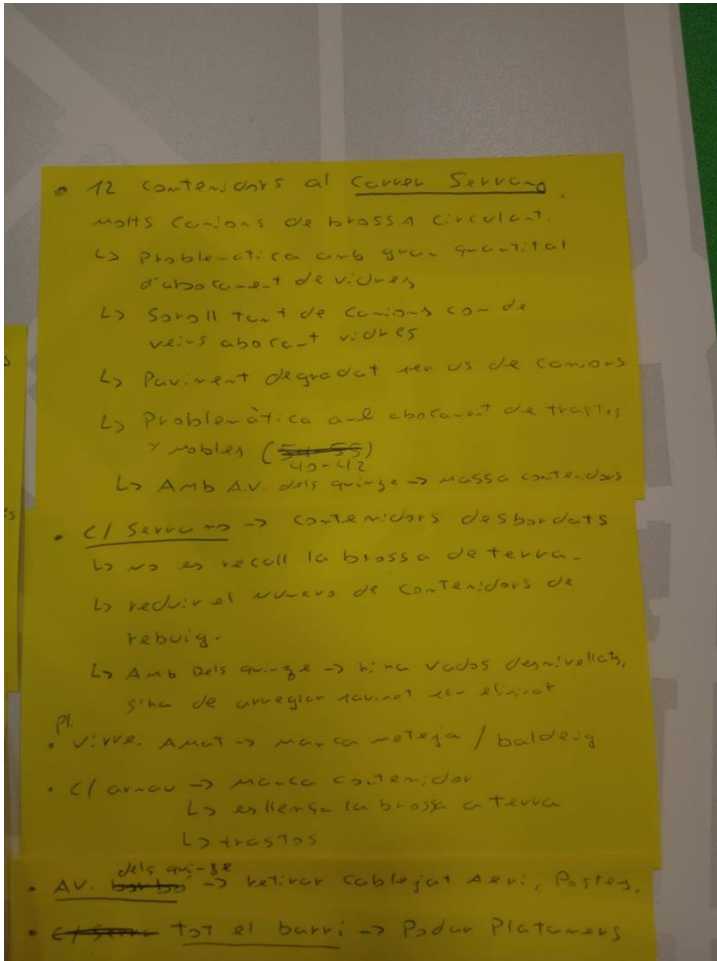 • 12 contenidors al Carrer Serrano.
Molts Camions de brossa circulant.
↳ Problematica amb gran quantitat
d'abocament de vidres
↳ Soroll tant de Camions com de
veïns abocant vidres
↳ Paviment degradat per us de camions
↳ Problemàtica amb abocament de trastos
y mobles (54-55)
40-42
↳ Amb A.V. dels quinze -> Massa contenidors
• C/ Serrano -> contenidors desbordats
↳ no es recull la brossa de terra.
↳ reduir el numero de contenidors de
rebuig.
↳ Amb Dels quinze -> hi ha Vados desnivellats,
s'ha de arreglar per
• Pl. Virrei Amat -> Manca neteja / baldeig
• C/ arnau -> Manca contenidor
↳ es llença la brossa a terra
↳ trastos
dels quinze
• AV. -> retirar Cablejat Aeri, Postes.
• tot el barri -> Podar Plataners